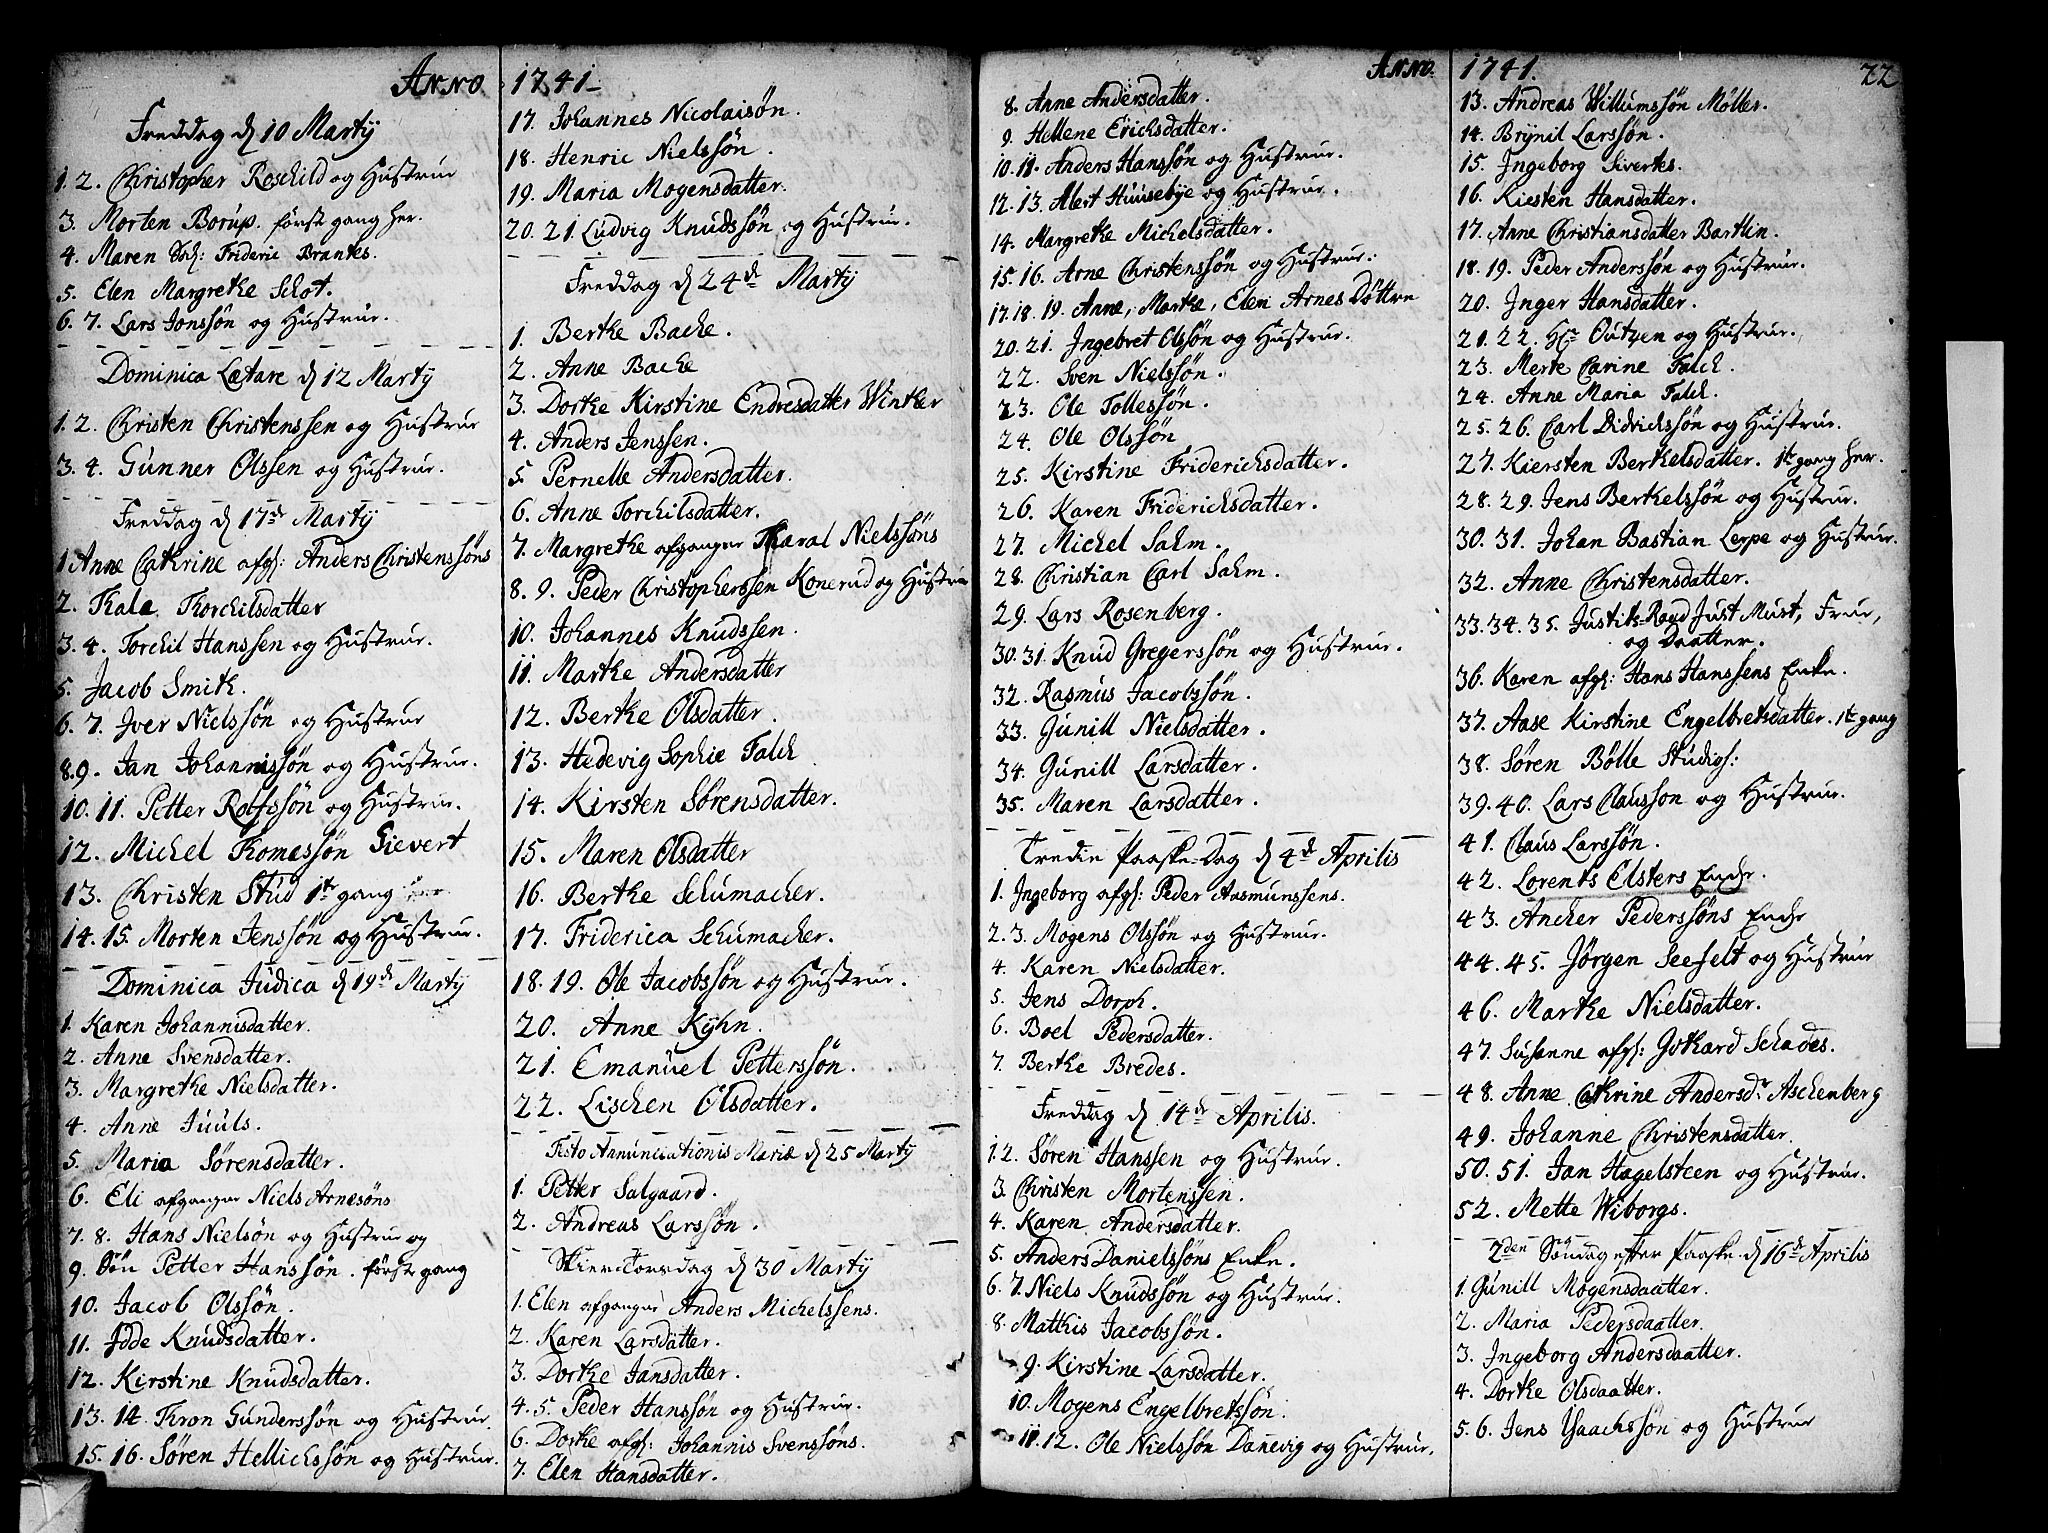 Anno
Freddag d 10 Martij
1. 2. Christopher Roschild og Hustrue
3. Morten Borup. först gang her.
4. Maren Sal: Frideric Brantes.
5. Elen Margrethe Schot.
6. 7. Lars Jonssön og Hustrue.
Dominica Lætare d 12 Martij
1. 2. Christen Christenssen og Hustrue
3. 4. Gunner Olssen og Hustrue.
Freddag d 17de Martij
1 Anne Cathrine afg: Anders Christenssöns
2. Thale Thorchilsdatter
3. 4. Torchil Hanssen og Hustrue.
5. Jacob Smith.
6. 7. Iver Nielssön og Hustrue
8. 9. Jan Johannissön og Hustrue.
10. 11. Petter Rolfssön og Hustrue.
12. Michel Thomessön Sievert
13. Christen Stud 1te gang her
14. 15. Morten Jenssön og Hustrue.
Dominica Judica d 19de Martij
1. Karen Johannisdatter.
2. Anne Svensdatter.
3. Margrethe Nielsdatter.
4. Anne Juuls.
5. Maria Sörensdatter.
6. Eli afgangne Niels Arnesöns
7. 8. Hans Nielsön og Hustrue og
9. Sön Petter Hanssön. förste gang
10. Jacob Olssön.
11. Idde Knudsdatter.
12. Kirstine Knudsdatter.
13. 14. Thron Gunderssön og Hustrue.
15. 16. Sören Hellichssön og Hustrue.
1741
17. Johannes Nicolaisön.
18. Henric Nielssön.
19. Maria Mogensdatter.
20. 21. Ludvig Knudssön og Hustrue.
Freddag d 24de Martij
1. Berthe Bache.
2. Anne Bache
3. Dorthe Kirstine Endresdatter Winther
4. Anders Jenssen.
5. Pernelle Andersdatter.
6. Anne Torchilsdatter.
7. Margrethe afgangne Tharal Nielssöns
8. 9. Peder Christopherssen Konerud og Hustrue
10. Johannes Knudssen.
11. Marthe Andersdatter
12. Berthe Olsdatter.
13. Hedevig Sophie Falch
14. Kirsten Sörensdatter.
15. Maren Olsdatter
16. Berthe Schumacher.
17. Friderica Schumacher.
18. 19. Ole Jacobssön og Hustrue.
20. Anne Kÿhn.
21. Emanuel Petterssön.
22. Lischen Olsdatter.
Festo Annunciationis Mariæ d 25 Martij
1. Petter Salgaard.
2. Andreas Larssön.
Skier-Torsdag d 30 Martij
1. Elen afgangne Anders Michelssens.
2. Karen Larsdatter.
3. Dorthe Jansdatter.
4. 5. Peder Hanssön og Hustrue.
6. Dorthe afg: Johannis Svenssöns.
7. Elen Hansdatter.
Anno.
8. Anne Andersdatter.
9. Hellene Erichsdatter.
10. 11. Anders Hanssön og Hustrue.
12. 13. Alert Huusebye og Hustrue.
14. Margrethe Michelsdatter.
15. 16. Arne Christenssön og Hustrue.
17. 18. 19. Anne, Marthe, Elen Arnes Döttre
20. 21. Ingebret Olssön og Hustrue.
22. Sven Nielssön.
23. Ole Tollessön.
24. Ole Olssön
25. Kirstine Friderichsdatter.
26. Karen Friderichsdatter.
27. Michel Sahm.
28. Christian Carl Sahm.
29. Lars Rosenberg.
30. 31. Knud Gregerssön og Hustrue.
32. Rasmus Jacobssön.
33. Gunill Nielsdatter.
34. Gunill Larsdatter.
35. Maren Larsdatter.
Tredie Paaske-Dag d 4de Aprilis
1. Ingeborg afg: Peder Aasmunssens.
2. 3. Mogens Olssön og Hustrue.
4. Karen Nielsdatter.
5. Jens Dorph.
6. Boel Pedersdatter.
7. Berthe Bredes.
Freddag d 14de Aprilis.
1. 2. Sören Hanssen og Hustrue.
3. Christen Mortenssen.
4. Karen Andersdatter.
5. Anders Danielssöns Enke.
6. 7. Niels Knudssön og Hustrue.
8. Mathis Jacobssön.
9. Kirstine Larsdatter.
10. Mogens Engelbretssön.
11. 12. Ole Nielssön Danevig og Hustrue.
1741.
22
13. Andreas Willumssön Möller.
14. Brÿnil Larssön.
15. Ingeborg Siverts.
16. Kiesten Hansdatter.
17. Anne Christiansdatter Barthin.
18. 19. Peder Anderssön og Hustrue.
20. Inger Hansdatter.
21. 22. Hr Outzen og Hustrue.
23. Merte Carine Falch.
24. Anne Maria Falch.
25. 26. Carl Didrichssön og Hustrue.
27. Kiersten Berthelsdatter. 1te gang her.
28. 29. Jens Berthelssön og Hustrue.
30. 31. Johan Bastian Lerpe og Hustrue.
32. Anne Christensdatter.
33. 34. 35. Justits-Raad Just Must, Frue,
og Daatter.
36. Karen afg: Hans Hanssens Enke.
37. Aase Kirstine Engelbretsdatter. 1te gang
38. Sören Bölle Studios:
39. 40. Lars Claussön og Hustrue.
41. Claus Larssön.
42. Lorents Elsters Enche.
43. Ancher Pederssöns Enche
44. 45. Jörgen Seefelt og Hustrue
46. Marthe Nielsdatter.
47. Susanne afg: Gothard Schades.
48. Anne Cathrine Andersdr Aschenberg
49. Johanne Christensdatter.
50. 51. Jan Hagelsteen og Hustrue.
52. Mette Wiborgs.
2den Söndag efter Paaske d 16de Aprilis
1. Gunill Mogensdaatter.
2. Maria Pedersdaatter.
3. Ingeborg Andersdaatter.
4. Dorthe Olsdaatter.
5. 6. Jens Ysaachssön og Hustrue